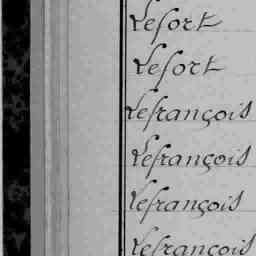 Lefort
Lefort
Lefrançois
Lefrançois
Lefrançois
Lefrançois